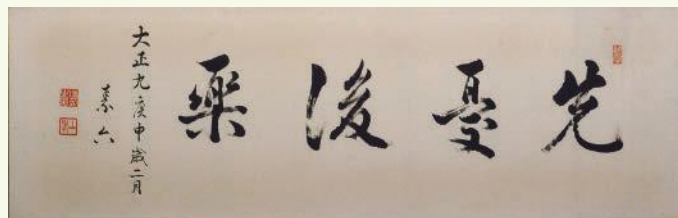 先憂後樂
大正九庚申歳二月
素六